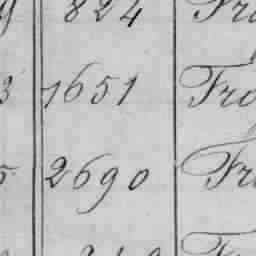 824 Fro
3 1651 Fro
5 2690 Fr